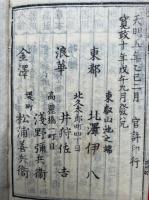 天明五年乙巳二月 官許刊行
寛政十年戊午九月發兌
東叡山池之端
東都 北澤伊八
北久太郎町四丁目
浪華 井狩佐吉
高麗橋一町目
淺野彌兵衞
堤町
金澤 松浦善兵衞